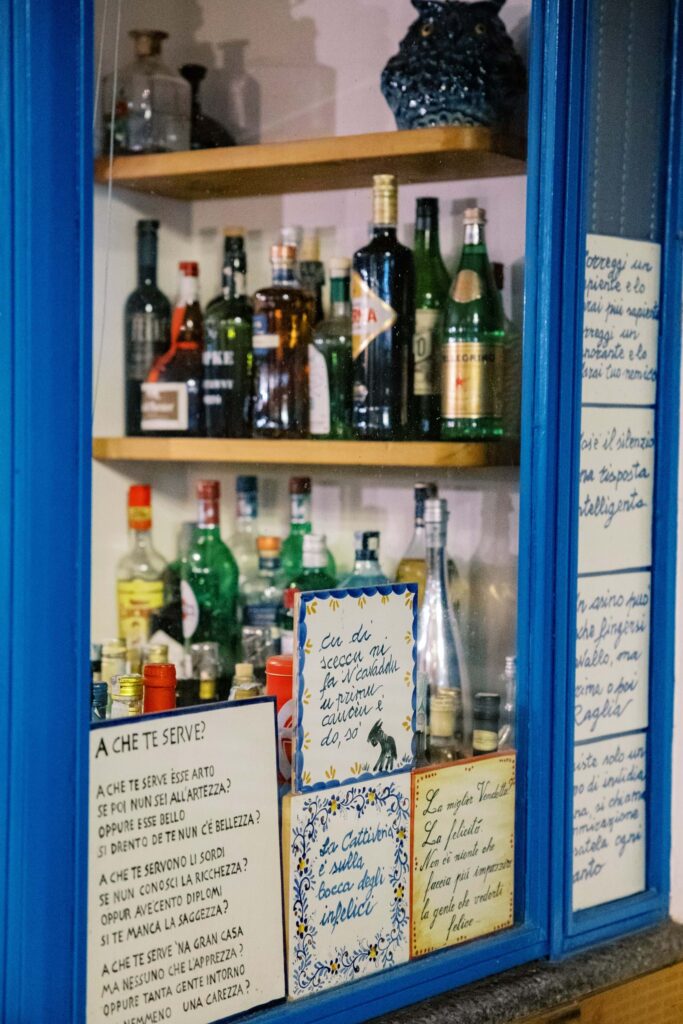 A CHE TE SERVE?
A CHE TE SERVE ÈSSE ARTO
SE POI NUN SEI ALL'ARTEZZA?
OPPURE ESSE BELLO
SI DRENTO DE TE NUN C'È BELLEZZA?
A CHE TE SERVONO LI SORDI
SE NUN CONOSCI LA RICCHEZZA?
OPPUR AVECENTO DIPLOMI
SI TE MANCA LA SAGGEZZA?
A CHE TE SERVE 'NA GRAN CASA
MA NESSUNO CHE L'APPREZZA?
OPPURE TANTA GENTE INTORNO
NEMMENO UNA CAREZZA?
Cu di
sceccu ni
fa 'n cavaddu
u primu
cauciu è
do, sò
La Cattiveria
è sulla
bocca degli
infelici
La miglior Vendetta?
La felicità.
Non c'è niente che
faccia più impazzire
la gente che vederti
felice...
orreggi un
piente e lo
rai più sapiente
rreggi un
norante e lo
rai tuo nemico
os'è il silenzio
na risposta
ntelligente
n asino può
che fingersi
avallo, ma
rima o poi
raglia
iste solo un
po di invidia
na, si chiama
mmirazione
satela ogni
anto